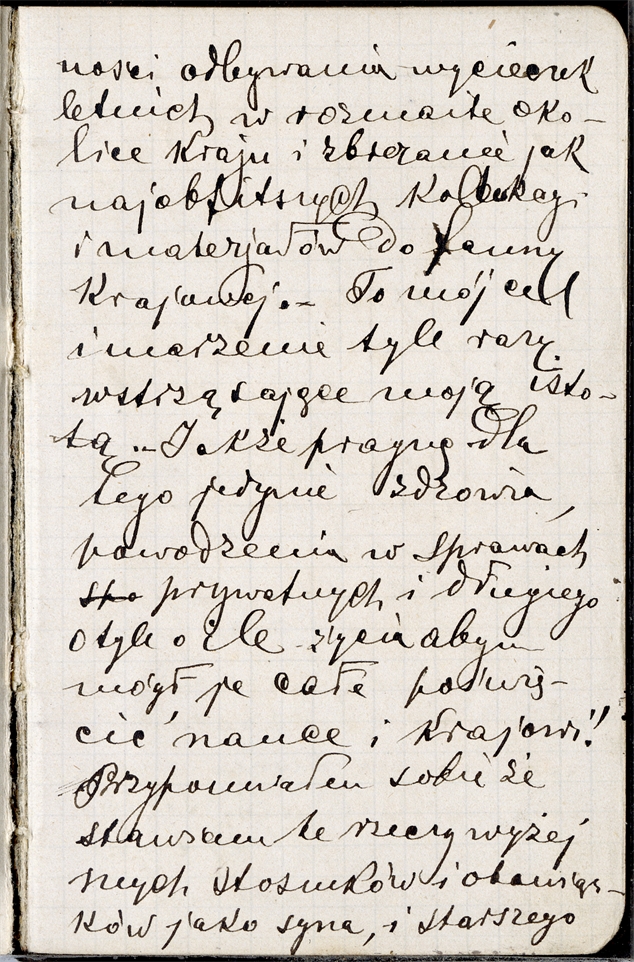 ności odbywania wycieczek
letnich w rozmaite oko-
lice Kraju i zbieranie jak
najobfitszych Kollekcyj
i materjałów do fauny
Krajowej.- To mój cel
i marzenie tyle razy
wstrząsające moją isto-
tą.- Jakże pragnę dla
tego jedynie zdrowia,
powodzenia w sprawach
spo prywatnych i długiego
o tyle o ile życia abym
mógł je całe poświę-
cić nauce i Krajowi!
Przypomniałem sobie że
stawiam te rzeczy wyżej
mych stosunków i obowiąz-
ków jako syna, i starszego